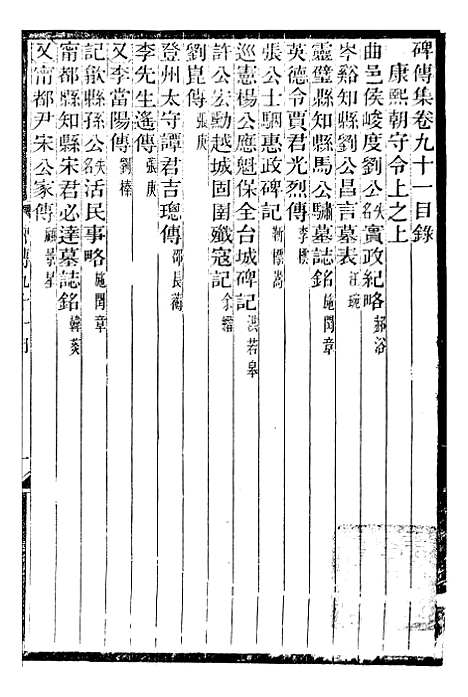 碑傳集卷九十一目錄
康熙朝守令上之上
曲邑侯峻度劉公失名實政紀略郝浴
岑谿知縣劉公昌言墓表汪琬
靈璧知縣馬公驌墓誌銘施閏章
英德令賈君光烈傳李樓
張公士駰惠政碑記靳標嵩
巡憲楊公應魁保全台城碑記洪若皋
許公宏勳越城固圉殲寇記余縉
劉崑傳張庚
登州太守譚君吉璁傳邵長蘅
李先生遙傳張庚
又李當陽傳劉榛
記歙縣孫公失名活民事略施閏章
甯都縣知縣宋君必達墓誌銘韓菼
又甯都尹宋公家傳顧景星